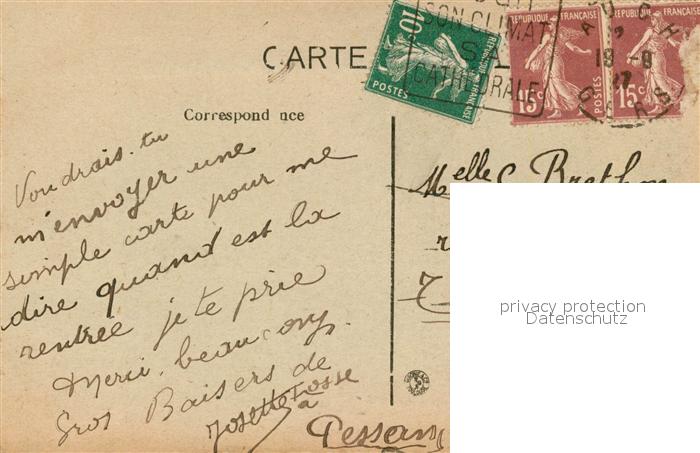 CARTE
SON CLIMAT
SA
CATHEDRALE
10c
POSTES
REPUBLIQUE FRANÇAISE
REPUBLIQUE FRANÇAISE
15c
POSTES
REPUBLIQUE FRANÇAISE
15c
AUCH
18-9
27
GERS
Correspond nce
Voudrais-tu
m'envoyer une
simple carte pour me
dire quand est la
rentrée je te prie
Merci beaucoup.
Gros Baisers de
Josette Fosse
à
Pessan
Melle C Brethon
privacy protection
Datenschutz